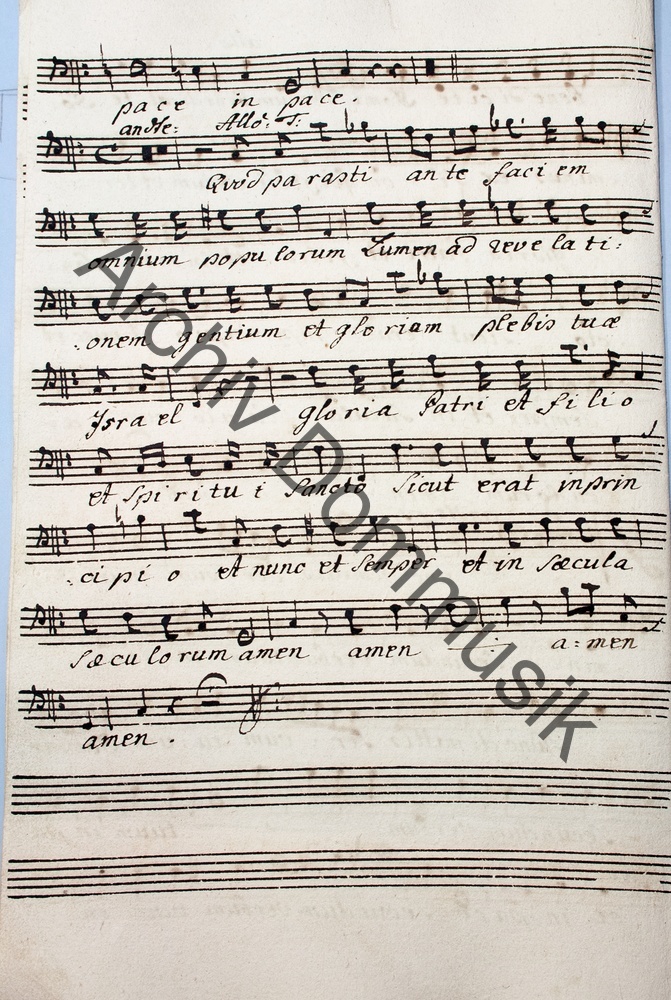 pace in pace
andte: Allo: T:
Quod parasti ante faciem
omnium populorum Lumen ad revelati:
:onem gentium et gloriam plebis tuæ
Israel gloria Patri et filio
et spiritui sancto sicut erat inprin
:cipio et nunc et semper et in sæcula
sæculorum amen amen :: a:men
amen.
Archiv Dommusik